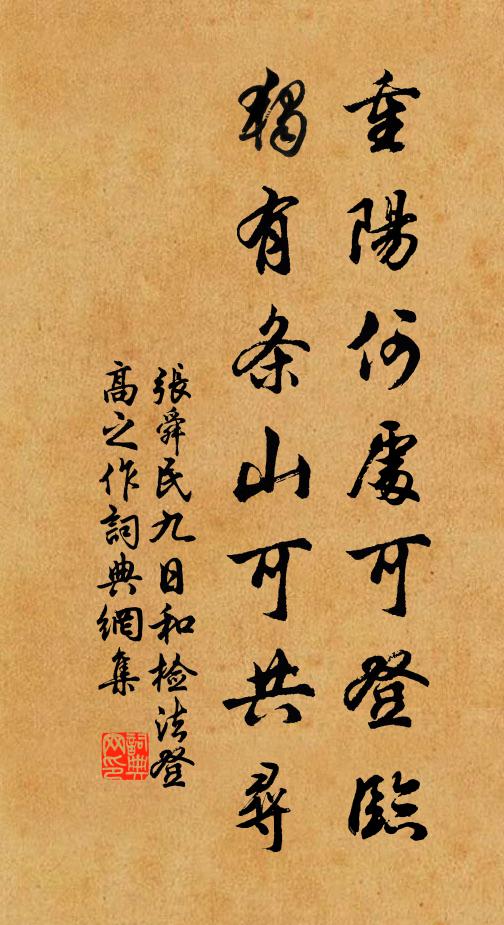 重陽何處可登臨
獨有条山可共尋
張舜民九日和檢法登
高之作詞典網集
詞典网印